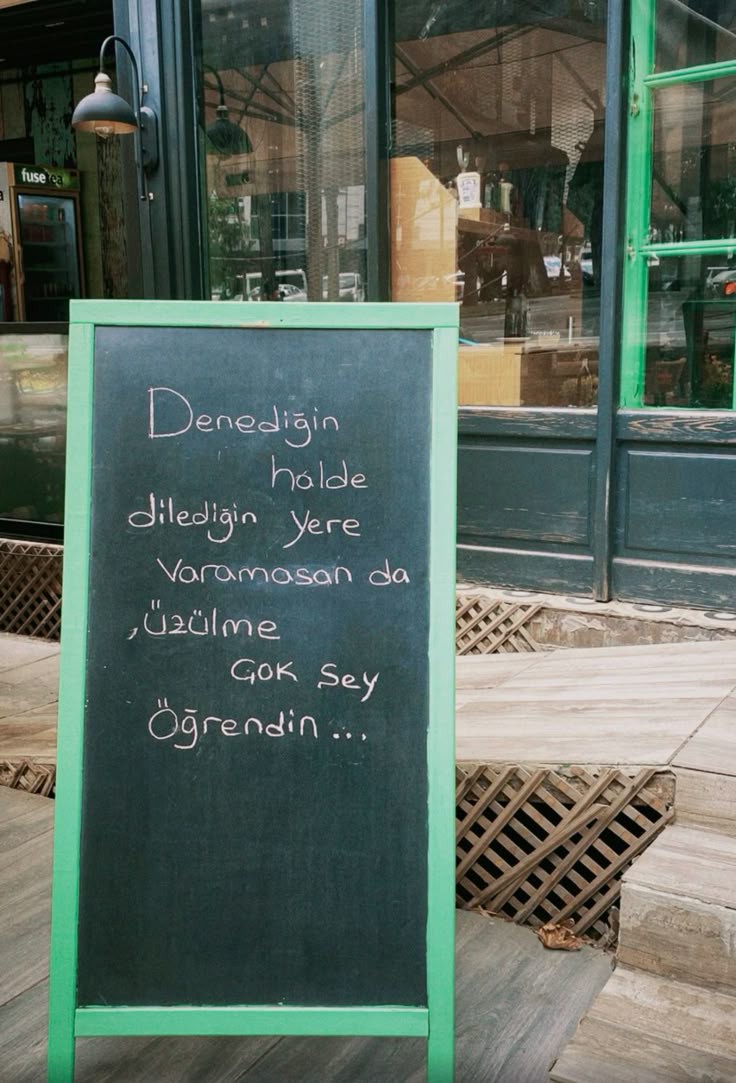 fuse tea
Denediğin
halde
dilediğin yere
varamasan da
,üzülme
Gok Şey
Öğrendin ...